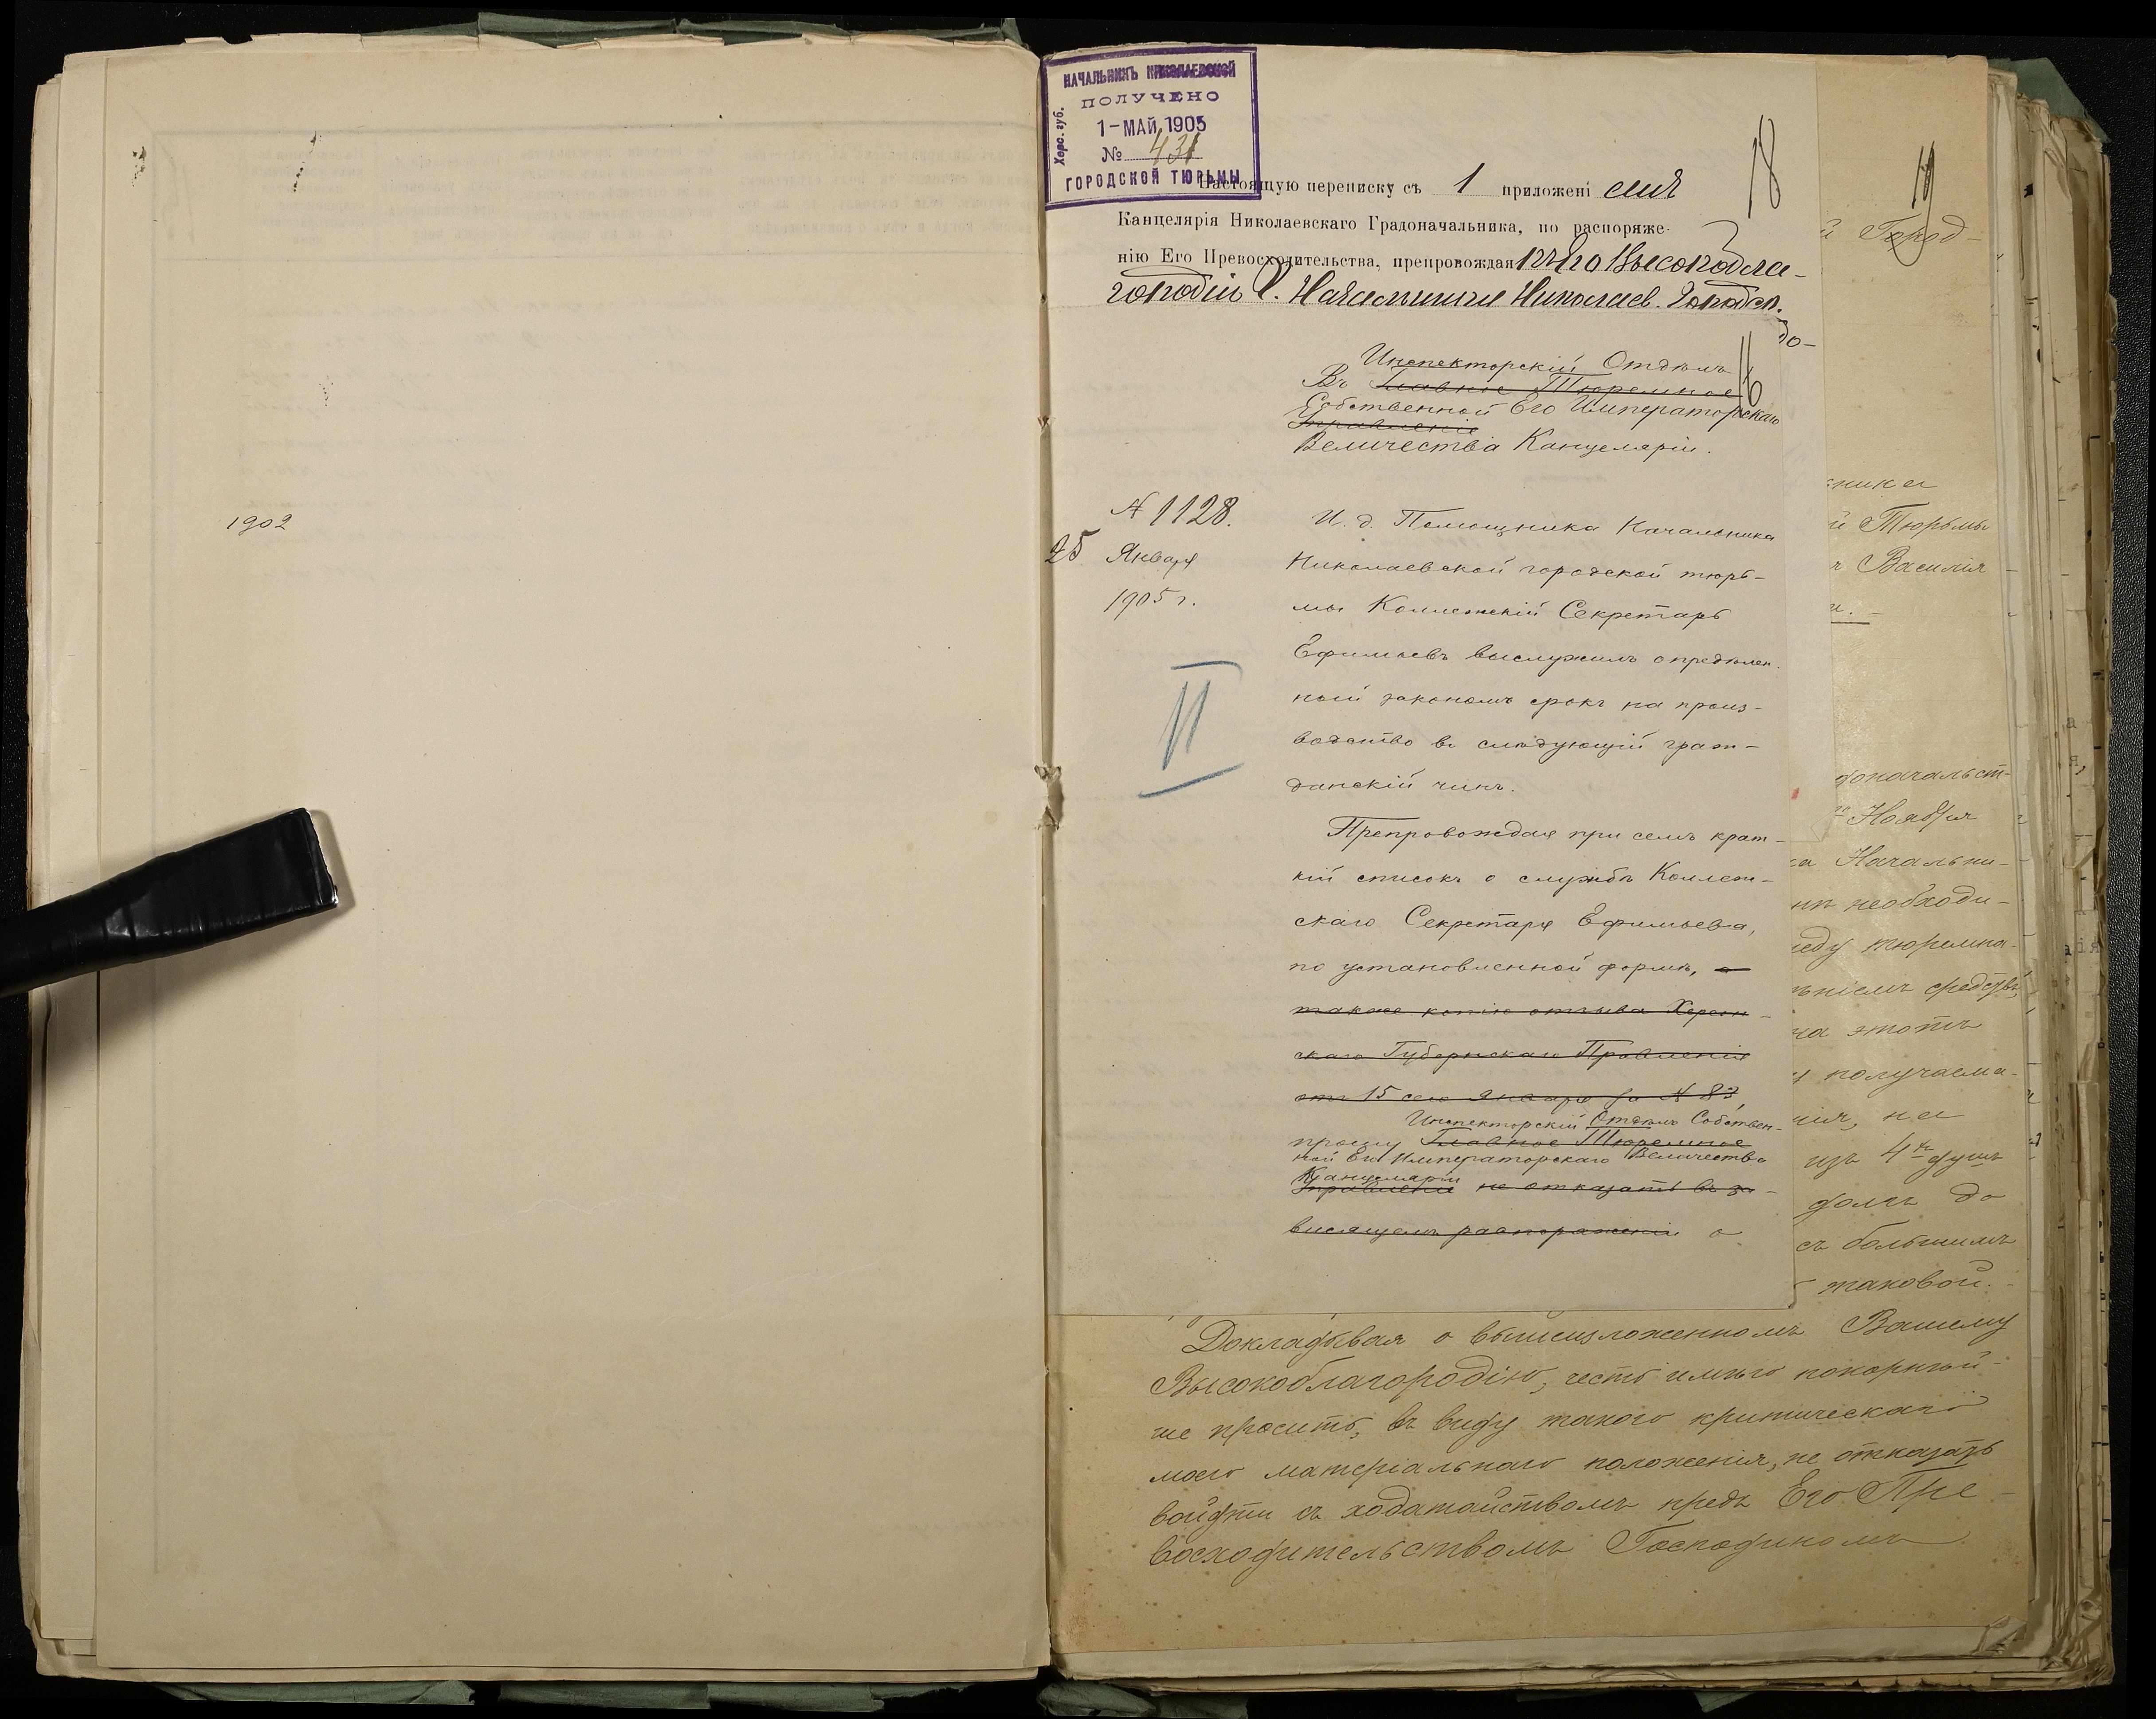 1902
НАЧАЛЬНИКЪ НИКОЛАЕВСКОЙ
ПОЛУЧЕНО
1-МАЙ 1905
№ 431
ГОРОДСКОЙ ТЮРЬМЫ
Херс. губ.
18
19
Настоящую переписку съ 1 приложені емъ
Канцелярія Николаевскаго Градоначальника, по распоряже-
нію Его Превосходительства, препровождая къ Его Высокобла-
городію Г. Начальнику Николаев. Городск.
16
Инспекторскій Отдѣлъ
Въ Главное Тюремное
Собственной Его Императорскаго
Управленіе
Величества Канцеляріи.
№ 1128.
25 Января
1905 г.
II
И. д. Помощника Начальника
Николаевской городской тюрь-
мы Коллежскій Секретарь
Ефимьевъ выслужилъ опредѣлен.
ный закономъ срокъ на произ-
водство въ слѣдующій граж-
данскій чинъ.
Препровождая при семъ крат-
кій списокъ о службѣ Коллеж-
скаго Секретаря Ефимьева,
по установленной формѣ, а
также копію отзыва Херсон-
скаго Губернскаго Правленія
отъ 15 сего Января за № 83,
Инспекторскій Отдѣлъ Собствен-
прошу Главное Тюремное
ной Его Императорскаго Величества
Канцеляріи
Управленіе не отказать въ за-
висящемъ распоряженіи о
й Город-
ника
й Тюрьмы
Василія
доначальст-
Ноября
Начальни-
необходи-
тюремна-
средствъ,
на этотъ
получаема-
нія, на
изъ 4хъ душъ
долгъ до
съ большимъ
таковой.
Докладывая о вышеизложенномъ Вашему
Высокоблагородію, честь имѣю покорнѣй-
ше просить, въ виду такого критическаго
моего матеріальнаго положенія, не отказать
войдти съ ходатайствомъ предъ Его Пре-
восходительствомъ Господиномъ